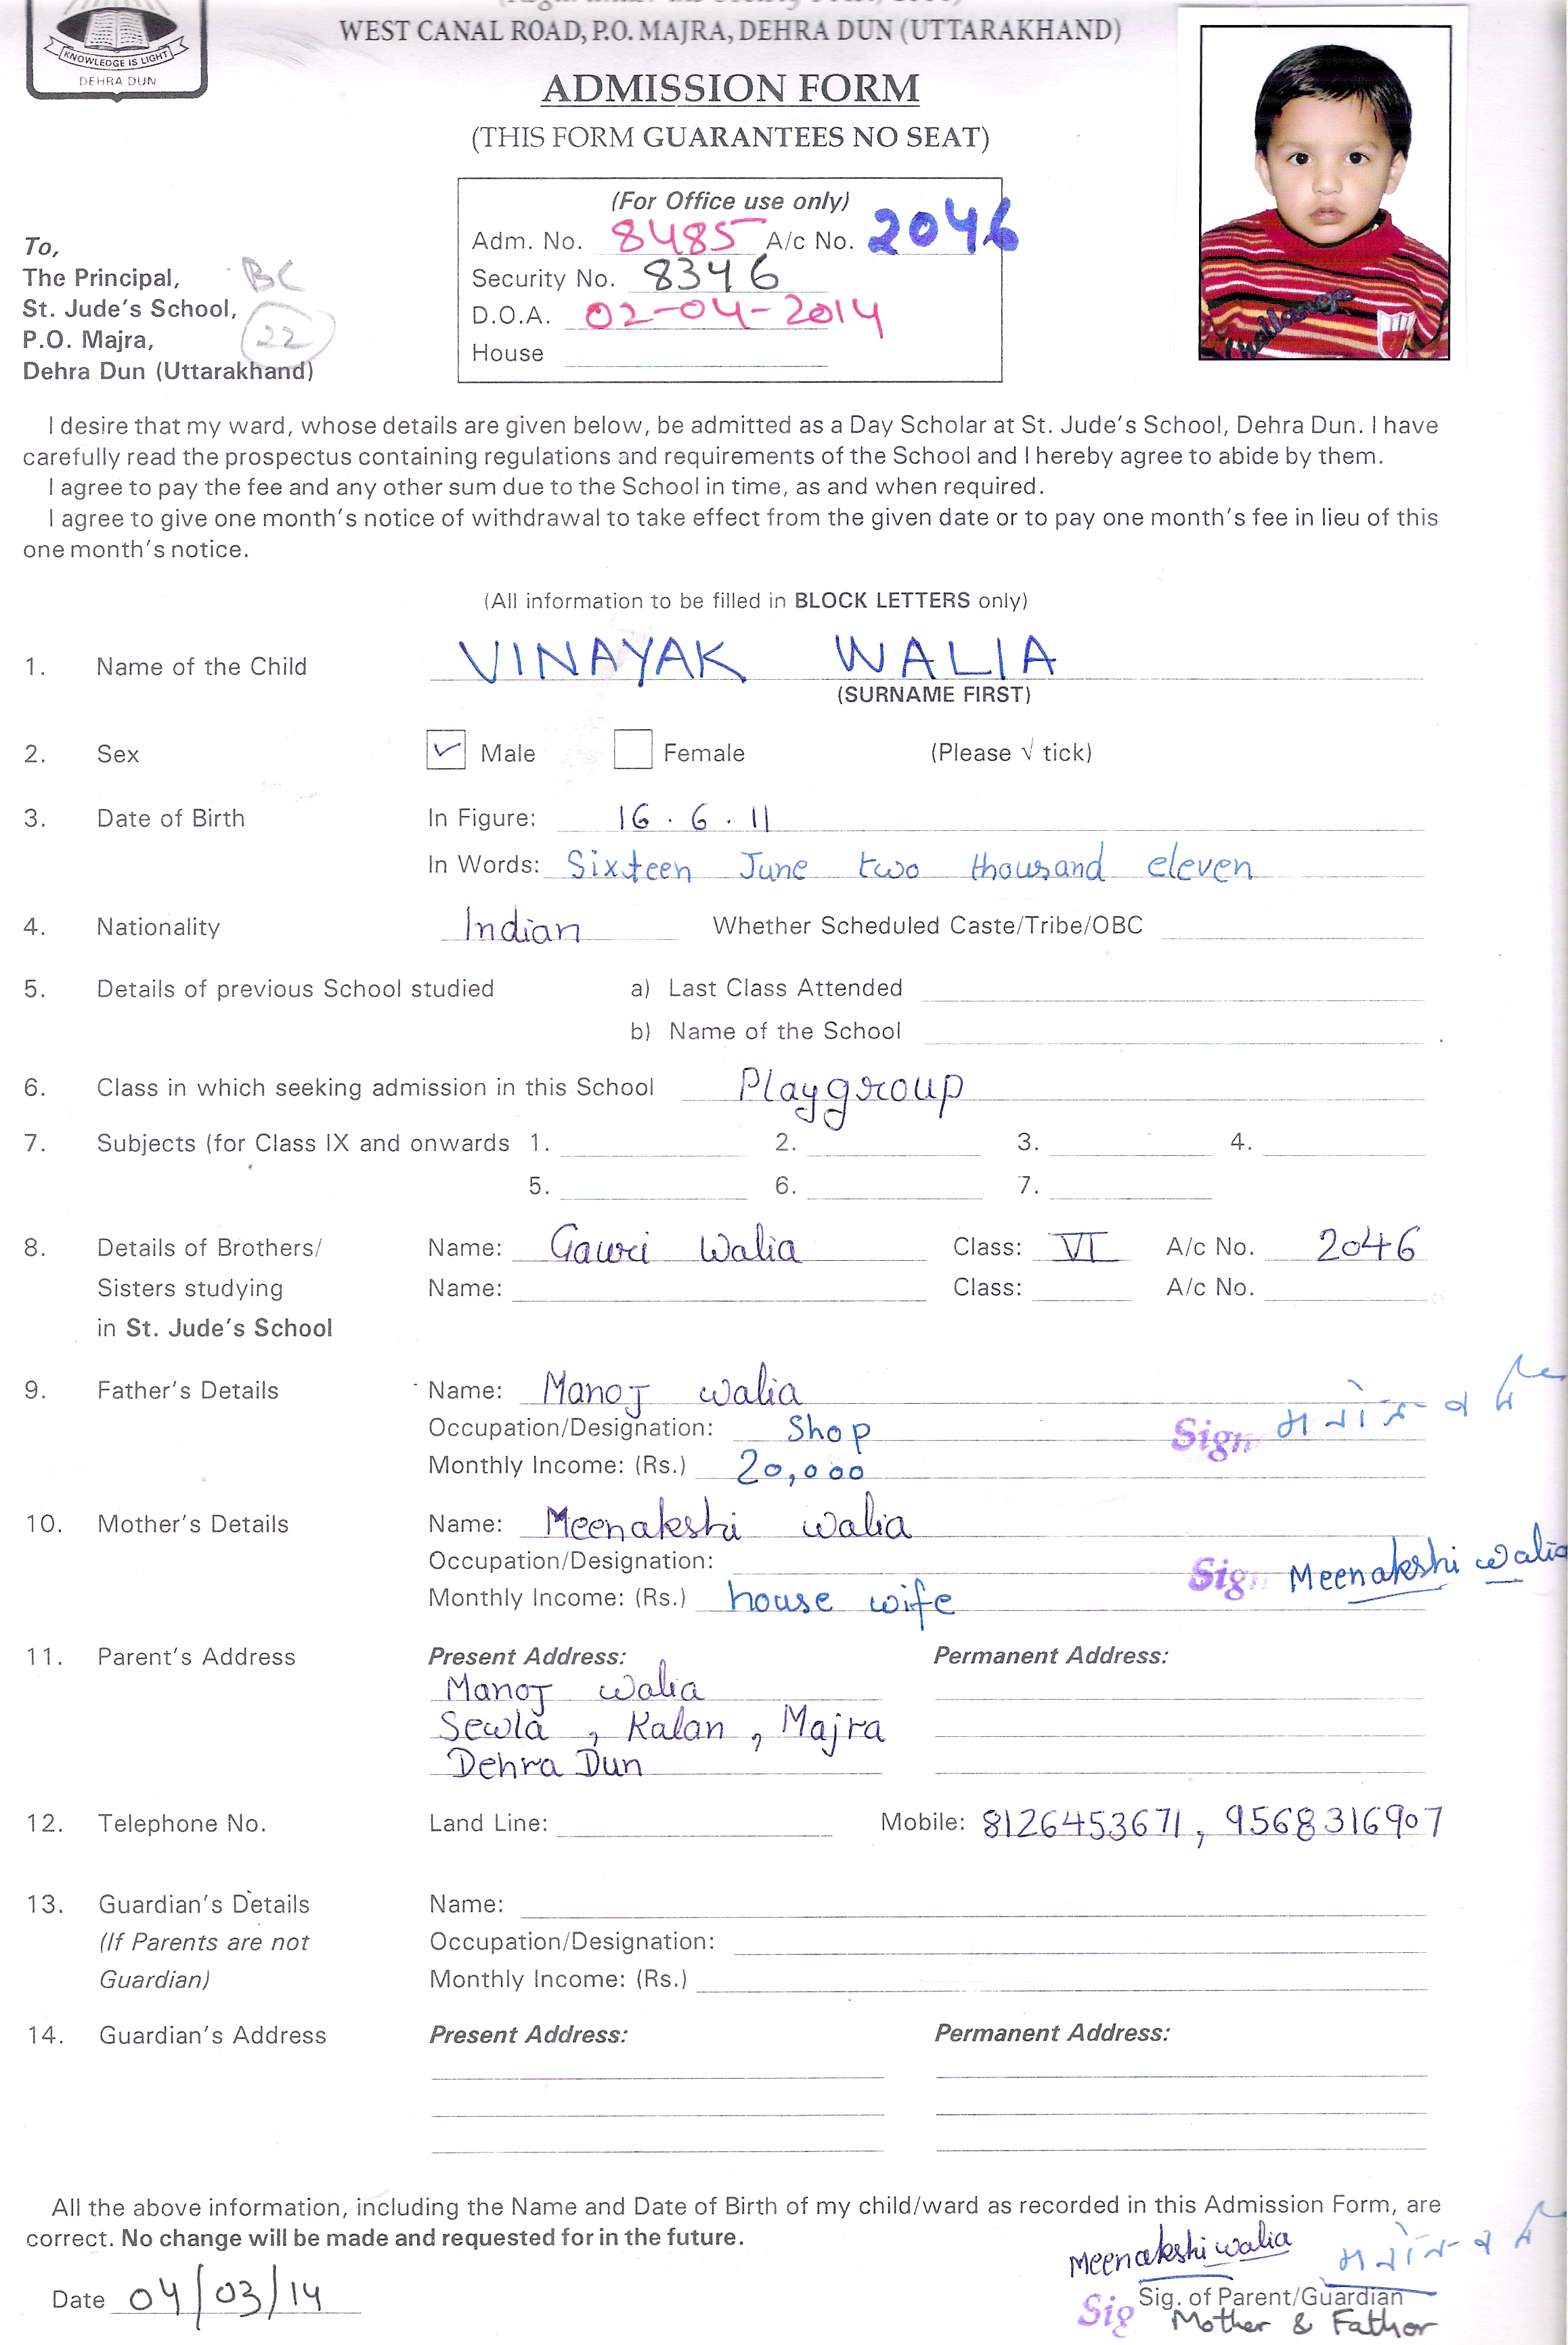 KNOWLEDGE IS LIGHT
DEHRA DUN
WEST CANAL ROAD, P.O. MAJRA, DEHRA DUN (UTTARAKHAND)
ADMISSION FORM
(THIS FORM GUARANTEES NO SEAT)
(For Office use only)
Adm. No. 8485 A/c No. 2046
Security No. 8346
D.O.A. 02-04-2014
House
To,
The Principal, BC
St. Jude's School,
P.O. Majra, 22
Dehra Dun (Uttarakhand)
Challange
I desire that my ward, whose details are given below, be admitted as a Day Scholar at St. Jude's School, Dehra Dun. I have
carefully read the prospectus containing regulations and requirements of the School and I hereby agree to abide by them.
I agree to pay the fee and any other sum due to the School in time, as and when required.
I agree to give one month's notice of withdrawal to take effect from the given date or to pay one month's fee in lieu of this
one month's notice.
(All information to be filled in BLOCK LETTERS only)
1. Name of the Child VINAYAK WALIA
(SURNAME FIRST)
2. Sex ✓ Male Female (Please √ tick)
3. Date of Birth In Figure: 16 . 6 . 11
In Words: Sixteen June two thousand eleven
4. Nationality Indian Whether Scheduled Caste/Tribe/OBC
5. Details of previous School studied a) Last Class Attended
b) Name of the School
6. Class in which seeking admission in this School Playgroup
7. Subjects (for Class IX and onwards 1. 2. 3. 4.
5. 6. 7.
8. Details of Brothers/ Name: Gauri Walia Class: VI A/c No. 2046
Sisters studying Name: Class: A/c No.
in St. Jude's School
9. Father's Details Name: Manoj walia
Occupation/Designation: Shop Sign
Monthly Income: (Rs.) 20,000
10. Mother's Details Name: Meenakshi walia
Occupation/Designation: Sign Meenakshi walia
Monthly Income: (Rs.) house wife
11. Parent's Address Present Address: Permanent Address:
Manoj walia
Sewla , Kalan , Majra
Dehra Dun
12. Telephone No. Land Line: Mobile: 8126453671, 9568316907
13. Guardian's Details Name:
(If Parents are not Occupation/Designation:
Guardian) Monthly Income: (Rs.)
14. Guardian's Address Present Address: Permanent Address:
All the above information, including the Name and Date of Birth of my child/ward as recorded in this Admission Form, are
correct. No change will be made and requested for in the future.
Meenakshi walia
Date 04/03/14 Sig. of Parent/Guardian
Sig Mother & Father